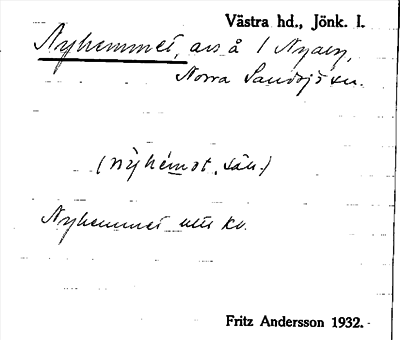 Västra hd., Jönk. l.
Nyhemmet, avs å 1 Nyaby,
Norra Sandsjö sn.
(nỳhém ot, sån.)
Nyhemmet utt kv.
Fritz Andersson 1932.